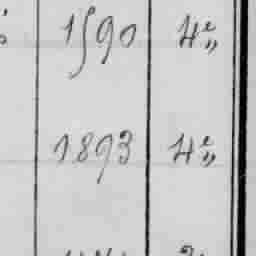 1890 4e „
1893 4e „